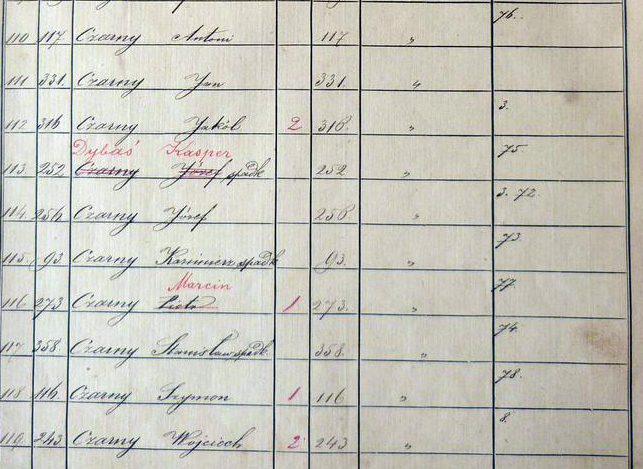 76.
110 117 Czarny Antoni 117 "
111 331. Czarny Jan 331. "
3.
112 316 Czarny Jakób 2 316. "
75
Dybaś Kasper
113. 252 Czarny Józef spadk 252 "
3. 72.
114. 256. Czarny Józef 256 "
73.
115. 93. Czarny Kazimierz spadk 93. "
77.
Marcin
116 273 Czarny Piotr 1 273. "
74.
117 358. Czarny Stanisław spadk. 358. "
78.
118 116. Czarny Szymon 1 116 "
8.
119. 243 Czarny Wojciech 2 243 "